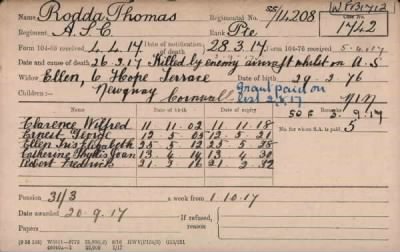 Name Rodda Thomas Regimental No. SS/14208 WPB1712
Regiment A.S.C. Rank Pte Case No. 1742
Form 104-88 received 4.4.17 Date of notification of death 28.3.17 Form 104-76 received 5.4.17
Date and cause of death 26.3.17 Killed by enemy aircraft whilst on A.S
Widow Ellen, 6 Hope Terrace Date of birth 29.2.76
Children:— Newquay Cornwall Grant paid on
3.9.17
Date of birth Date of expiry No. for whom S.A. is paid. 5
Clarence Wilfred 11 11 02 11 11 18
Ernest 12 5 05 12 5 21
Ellen Iris Elizabeth 25 5 12 25 5 28
Catherine Phyllis Joan 13 4 14 13 4 30
Robert Fredrick 21 3 16 21 3 32
Pension 31/3 a week from 1.10.17
Date awarded 20.9.17 If refused, reason